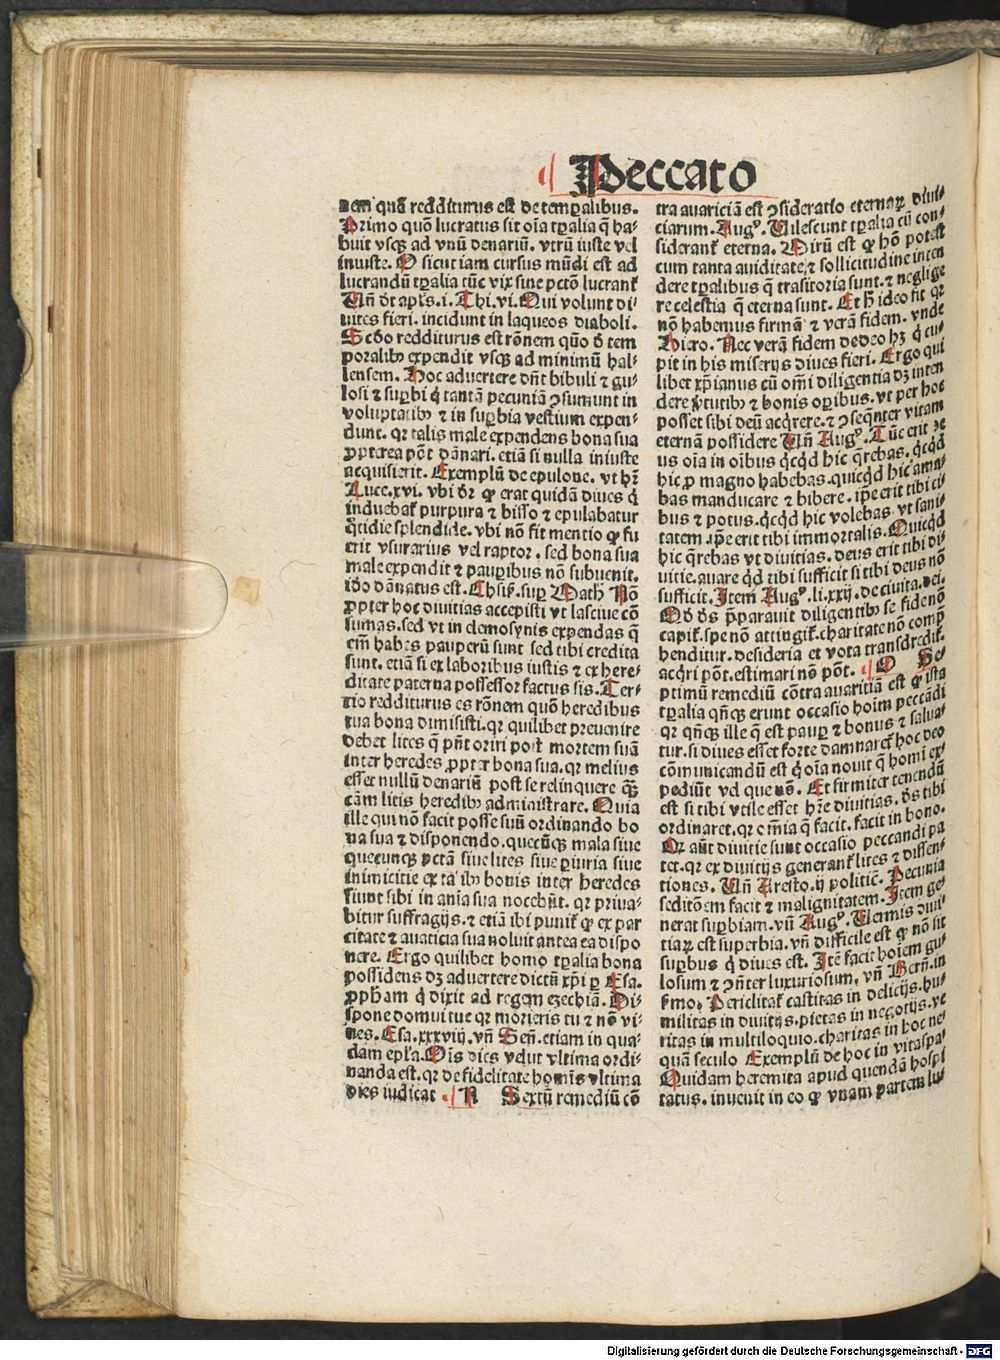 Peccato
nem quā redditurus est de tempꝛalibus.
Primo quō lucratus sit oīa tp̄alia q̄ ha-
buit vsq̢ ad vnū denariū. vtrū iuste vel
iniuste. O sicut iam cursus mūdi est ad
lucrandū tp̄alia tūc vix sine pctō lucrant᷑
Un̄ dt̄ apl̄s. i. Thi. vi. Qui volunt di
uites fieri. incidunt in laqueos diaboli.
Scd̄o redditurus est rōnem quō d̄ tem
poꝛalibꝫ expendit vsq̢ ad minimū hal-
lensem. Hoc aduertere dn̄t bibuli ⁊ gu-
losi ⁊ sup̄bi q̇ tantā pecuniā ꝯsumunt in
voluptatibꝫ ⁊ in sup̄bia vestium expen-
dunt. qꝛ talis male expendens bona sua
ꝓpterea pōt dānari. etiā si nulla iniuste
acquisierit. Exemplū de epulone. vt hr̄
Luce. xvi. vbi dr̄ ꝙ erat quidā diues q̇
induebat᷑ purpura ⁊ bisso ⁊ epulabatur
q̄tidie splendide. vbi nō fit mentio ꝙ fu
erit vsurarius vel raptoꝛ. sed bona sua
male expendit ⁊ paup̄ibus nō subuenit.
iō dānatus est. Chris. sup̄ Math̄ Nō
ꝓpter hoc diuitias accepisti vt lasciue cō
sumas. sed vt in elemosynis expendas q̄
em̄ habes pauperū sunt sed tibi credita
sunt. etiā si ex laboꝛibus iustis ⁊ ex here-
ditate paterna possessoꝛ factus sis. Ter-
tio redditurus es rōnem quō heredibus
tua bona dimisisti. qꝛ quilibet preuenire
debet lites q̄ pn̄t oꝛiri post moꝛtem suā
inter heredes ꝓpter bona sua. qꝛ melius
esset nullū denariū post se relinquere q̄ꝫ
cām litis heredibꝫ administrare. Quia
ille qui nō facit posse suū oꝛdinando bo
na sua ⁊ disponendo. quecūq̢ mala siue
quecunq̢ pctā siue lites siue ꝑiuria siue
inimicitie ex talibꝫ bonis inter heredes
fiunt sibi in aīa sua nocebūt. qꝛ priua-
bitur suffragijs. ⁊ etiā ibi punit᷑ ꝙ ex par
citate ⁊ auaticia sua noluit antea ea dispo
nere. Ergo quilibet homo tp̄alia bona
possidens dꝫ aduertere dictū xp̄i ꝑ Esa.
ꝓph̄am q̇ dixit ad regem ezechiā. Di-
spone domui tue qꝛ moꝛieris tu ⁊ nō vi-
ues. Esa. xxxviij. vn̄ Sen̄. etiam in qua-
dam epl̄a. Oīs dies velut vltima oꝛdi-
nanda est. qꝛ de fidelitate homīs vltima
dies iudicat N Sextū remediū cō
tra auariciā est ꝯsideratio eternaꝝ diui-
ciarum. Augꝰ. Uilescunt tp̄alia cū con-
siderant᷑ eterna. Mirū est ꝙ hō potest
cum tanta auiditate ⁊ sollicitudine inten
dere tp̄alibus q̄ trāsitoꝛia sunt. ⁊ neglige
re celestia q̄ eterna sunt. Et h̄ ideo fit qꝛ
nō habemus firmā ⁊ verā fidem. vnde
Hiero. Nec verā fidem de deo hꝫ q̇ cu-
pit in his miserijs diues fieri. Ergo qui
libet xp̄ianus cū om̄i diligentia dꝫ inten
dere v̄tutibꝫ ⁊ bonis op̄ibus. vt per hoc
posset sibi deū acq̇rere. ⁊ ꝯseq̄nter vitam
eternā possidere Un̄ Augꝰ. Tūc erit de
us oīa in oībus q̇cq̇d hic q̄rebas. q̇cq̇d
hic ꝓ magno habebas. quicq̇d hic ama-
bas manducare ⁊ bibere. ip̄e erit tibi ci-
bus ⁊ potus. q̇cq̇d hic volebas vt sani-
tatem ip̄e erit tibi immoꝛtalis. Quicq̇d
hic q̄rebas vt diuitias. deus erit tibi di-
uitie. auare q̇d tibi sufficit si tibi deus nō
sufficit. Item Augꝰ. li. xxij. de ciuita. dei.
Qd̄ ds̄ p̄parauit diligentibꝫ se fide nō
capit᷑. spe nō attingit᷑. charitate nō comp̄
henditur. desideria et vota transgredit᷑.
acq̇ri pōt. estimari nō pōt. O Se-
ptimū remediū cōtra auaritiā est ꝙ ista
tp̄alia qn̄q̢ erunt occasio hoīm peccādi
qꝛ qn̄q̢ ille q̄ est paup̄ ⁊ bonus ⁊ salua-
tur. si diues esset foꝛte damnaret᷑ hoc deo
cōmunicandū est q̇ oīa nouit q̄ homī ex-
pediūt vel que nō. Et firmiter tenendū
est si tibi vtile esset hr̄e diuitias. ds̄ tibi
oꝛdinaret. qꝛ em̄ia q̄ facit. facit in bono.
Qꝛ aūt diuitie sunt occasio peccandi pa
tet. qꝛ ex diuitijs generant᷑ lites ⁊ dissen-
tiones. Un̄ Aresto. ij politic̄. Pecunia
seditōem facit ⁊ malignitatem. Item ge-
nerat sup̄biam. vn̄ Augꝰ. Uermis diui-
tiaꝝ est superbia. vn̄ difficile est ꝙ nō sit
sup̄bus q̇ diues est. Itē facit hoīem gu-
losum ⁊ ꝯn̄ter luxuriosum. vn̄ Bern̄. in
sermo. Periclitat᷑ castitas in delicijs. hu-
militas in diuitijs. pietas in negotijs. ve
ritas in multiloquio. charitas in hoc ne-
quā seculo Exemplū de hoc in vitaspa-
Quidam heremita apud quendā hospi
tatus. inuenit in eo ꝙ vnam partem lu-
Digitalisierung gefördert durch die Deutsche Forschungsgemeinschaft - DFG